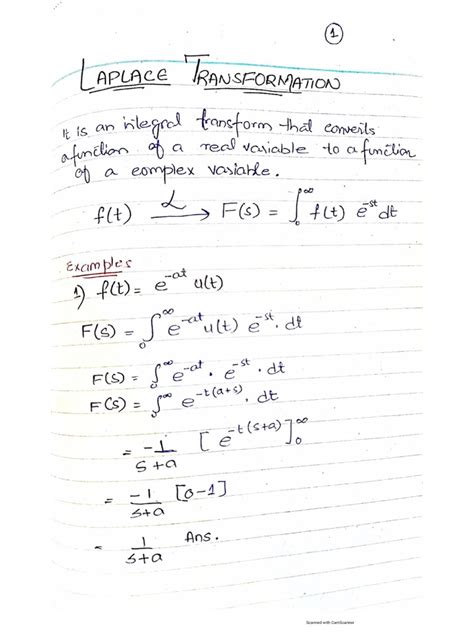 1
LAPLACE TRANSFORMATION
It is an integral transform that converts
a function of a real variable to a function
of a complex variable.
f(t) ℒ→ F(s) = ∫₀^∞ f(t) e^-st dt
Examples
1) f(t) = e^-at u(t)
F(s) = ∫₀^∞ e^-at u(t) e^-st . dt
F(s) = ∫₀^∞ e^-at . e^-st . dt
F(s) = ∫₀^∞ e^-t(a+s) . dt
= -1/(s+a) [e^-t(s+a)]₀^∞
= -1/(s+a) [0-1]
= 1/(s+a) Ans.
Scanned with CamScanner